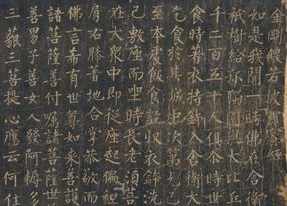 金剛般若波羅蜜經
如是我聞一時佛在舍衛
祇樹給孤獨園與大比丘
千二百五十人俱尒時世
食時著衣持鉢入舍衛大
乞食於其城中次第乞已
至本處飯食訖收衣鉢洗
已敷座而坐時長老須菩
在大衆中即從座起偏袒
肩右膝著地合掌恭敬而
佛言希有世尊如來善護
諸菩薩善付囑諸菩薩世
善男子善女人發阿耨多
三藐三菩提心應云何住